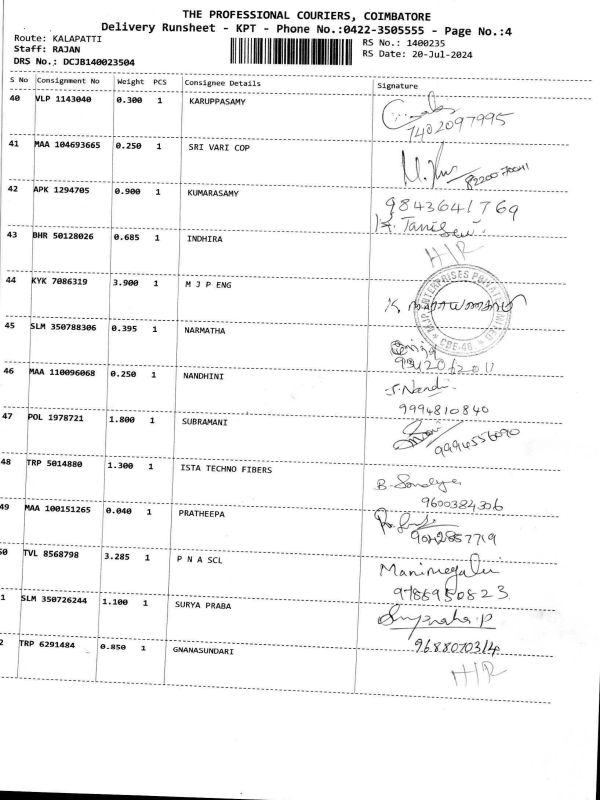 THE PROFESSIONAL COURIERS, COIMBATORE
Delivery Runsheet - KPT - Phone No.:0422-3505555 - Page No.:4
Route: KALAPATTI
RS No.: 1400235
Staff: RAJAN
RS Date: 20-Jul-2024
DRS No.: DCJB140023504
S No Consignment No Weight PCS Consignee Details Signature
40 VLP 1143040 0.300 1 KARUPPASAMY
7402097995
41 MAA 104693665 0.250 1 SRI VARI COP
8220070041
42 APK 1294705 0.900 1 KUMARASAMY
9843641769
43 BHR 50128026 0.685 1 INDHIRA
H/R
44 KYK 7086319 3.900 1 M J P ENG
M.J.P. ENTERPRISES PRIVATE LIMITED
CBE-48
45 SLM 350788306 0.395 1 NARMATHA
46 MAA 110096068 0.250 1 NANDHINI
J. Nandi
9994810840
47 POL 1978721 1.800 1 SUBRAMANI
9994556090
48 TRP 5014880 1.300 1 ISTA TECHNO FIBERS
B. Sandya
9600384306
49 MAA 100151265 0.040 1 PRATHEEPA
9042857719
50 TVL 8568798 3.285 1 P N A SCL
Manimegalai
9786950823
1 SLM 350726244 1.100 1 SURYA PRABA
9688070314
2 TRP 6291484 0.850 1 GNANASUNDARI
H/R